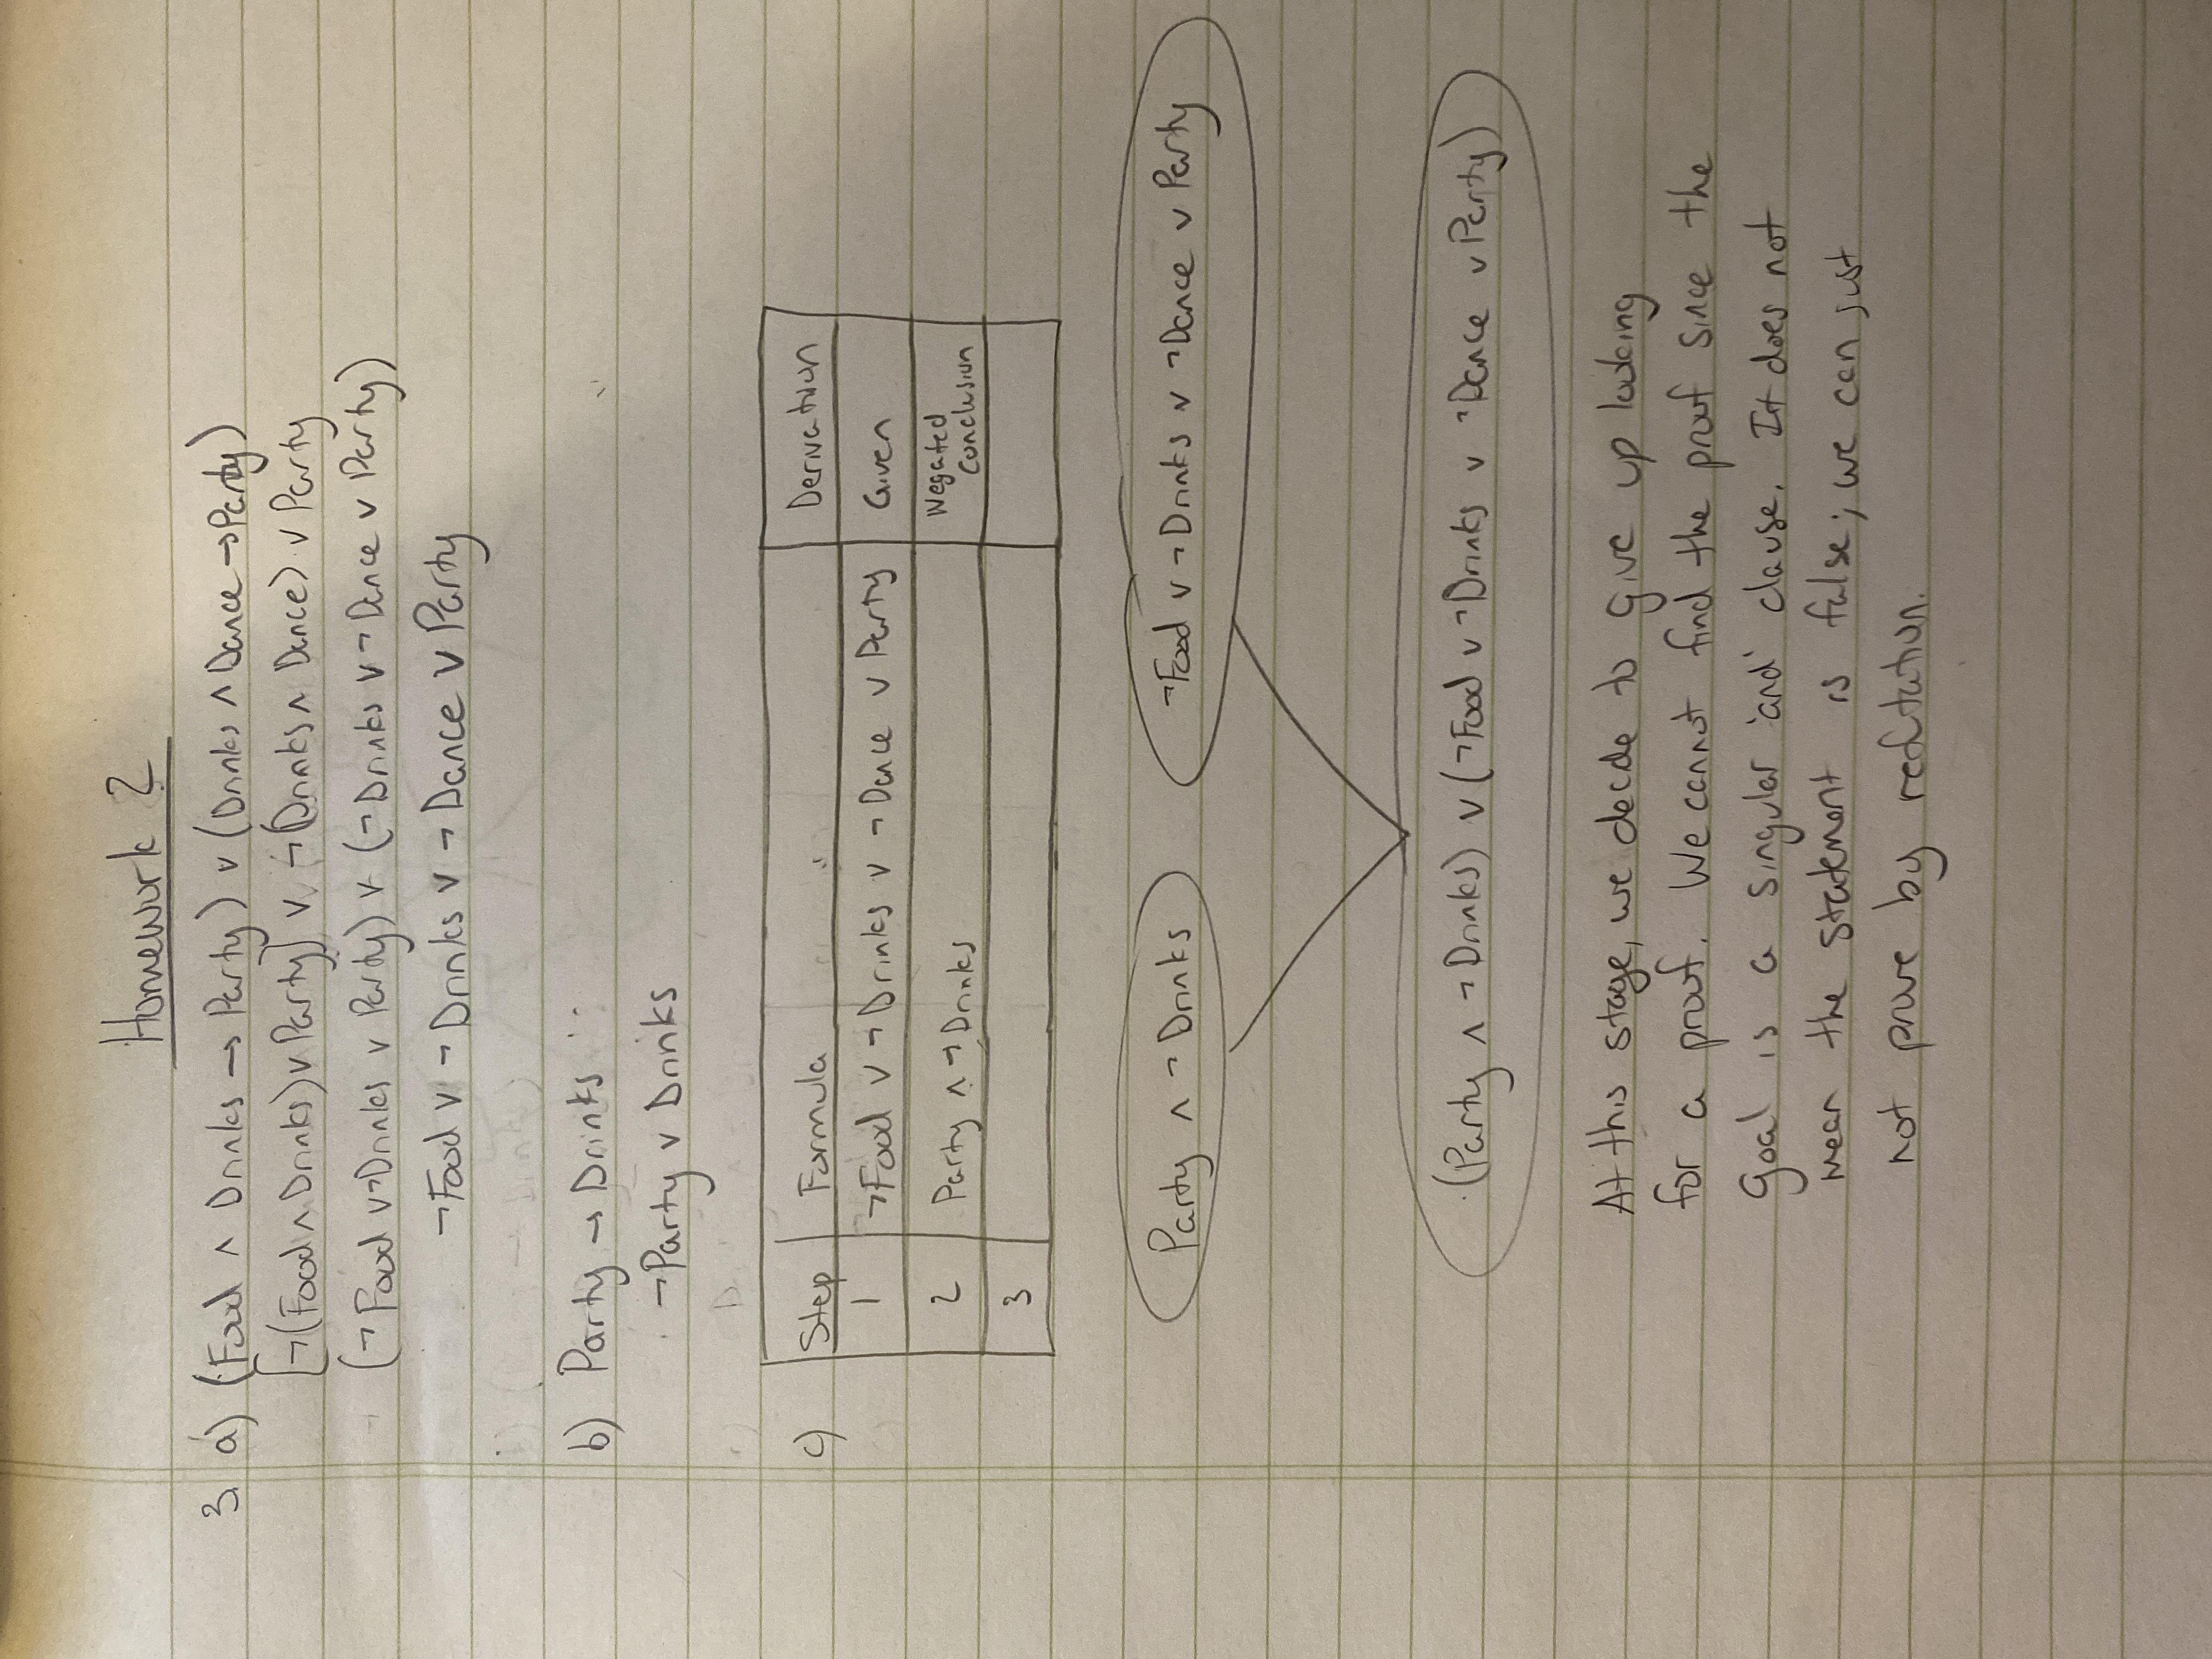 Homework 2
3. a) (Food ∧ Drinks → Party) ∨ (Drinks ∧ Dance → Party)
[¬(Food ∧ Drinks) ∨ Party] ∨ ¬(Drinks ∧ Dance) ∨ Party
(¬Food ∨ ¬Drinks ∨ Party) ∨ (¬Drinks ∨ ¬Dance ∨ Party)
¬Food ∨ ¬Drinks ∨ ¬Dance ∨ Party
b) Party → Drinks
¬Party ∨ Drinks
c) Step Formula Derivation
1 ¬Food ∨ ¬Drinks ∨ ¬Dance ∨ Party Given
2 Party ∧ ¬Drinks Negated Conclusion
3
Party ∧ ¬Drinks ¬Food ∨ ¬Drinks ∨ ¬Dance ∨ Party
(Party ∧ ¬Drinks) ∨ (¬Food ∨ ¬Drinks ∨ ¬Dance ∨ Party)
At this stage, we decide to give up looking
for a proof. We cannot find the proof since the
goal is a singular 'and' clause. It does not
mean the statement is false; we can just
not prove by refutation.